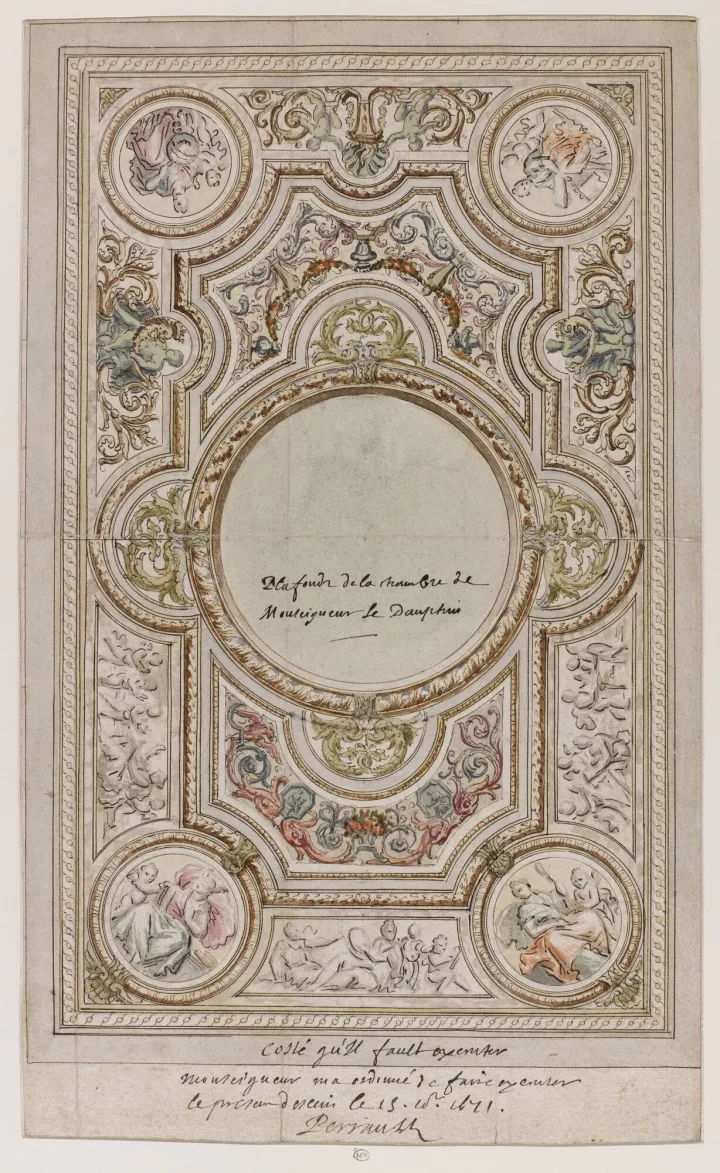 Plafondz de la chambre de
Monseigneur Le Dauphin
Costé qu'Il fault executer
Monseigneur m'a ordonné de faire executer
le present dessein le 15. 10.e 1671.
Perrault
MV